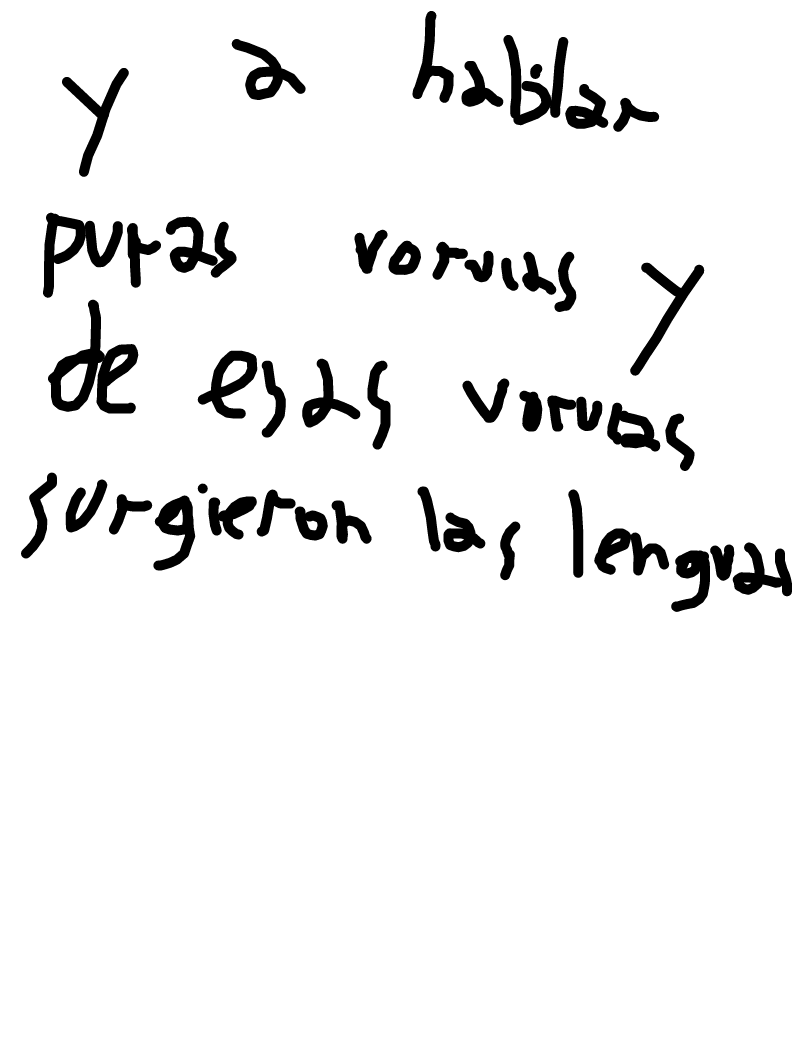 y a hablar
puras vorvias y
de esas vorvias
surgieron las lenguas